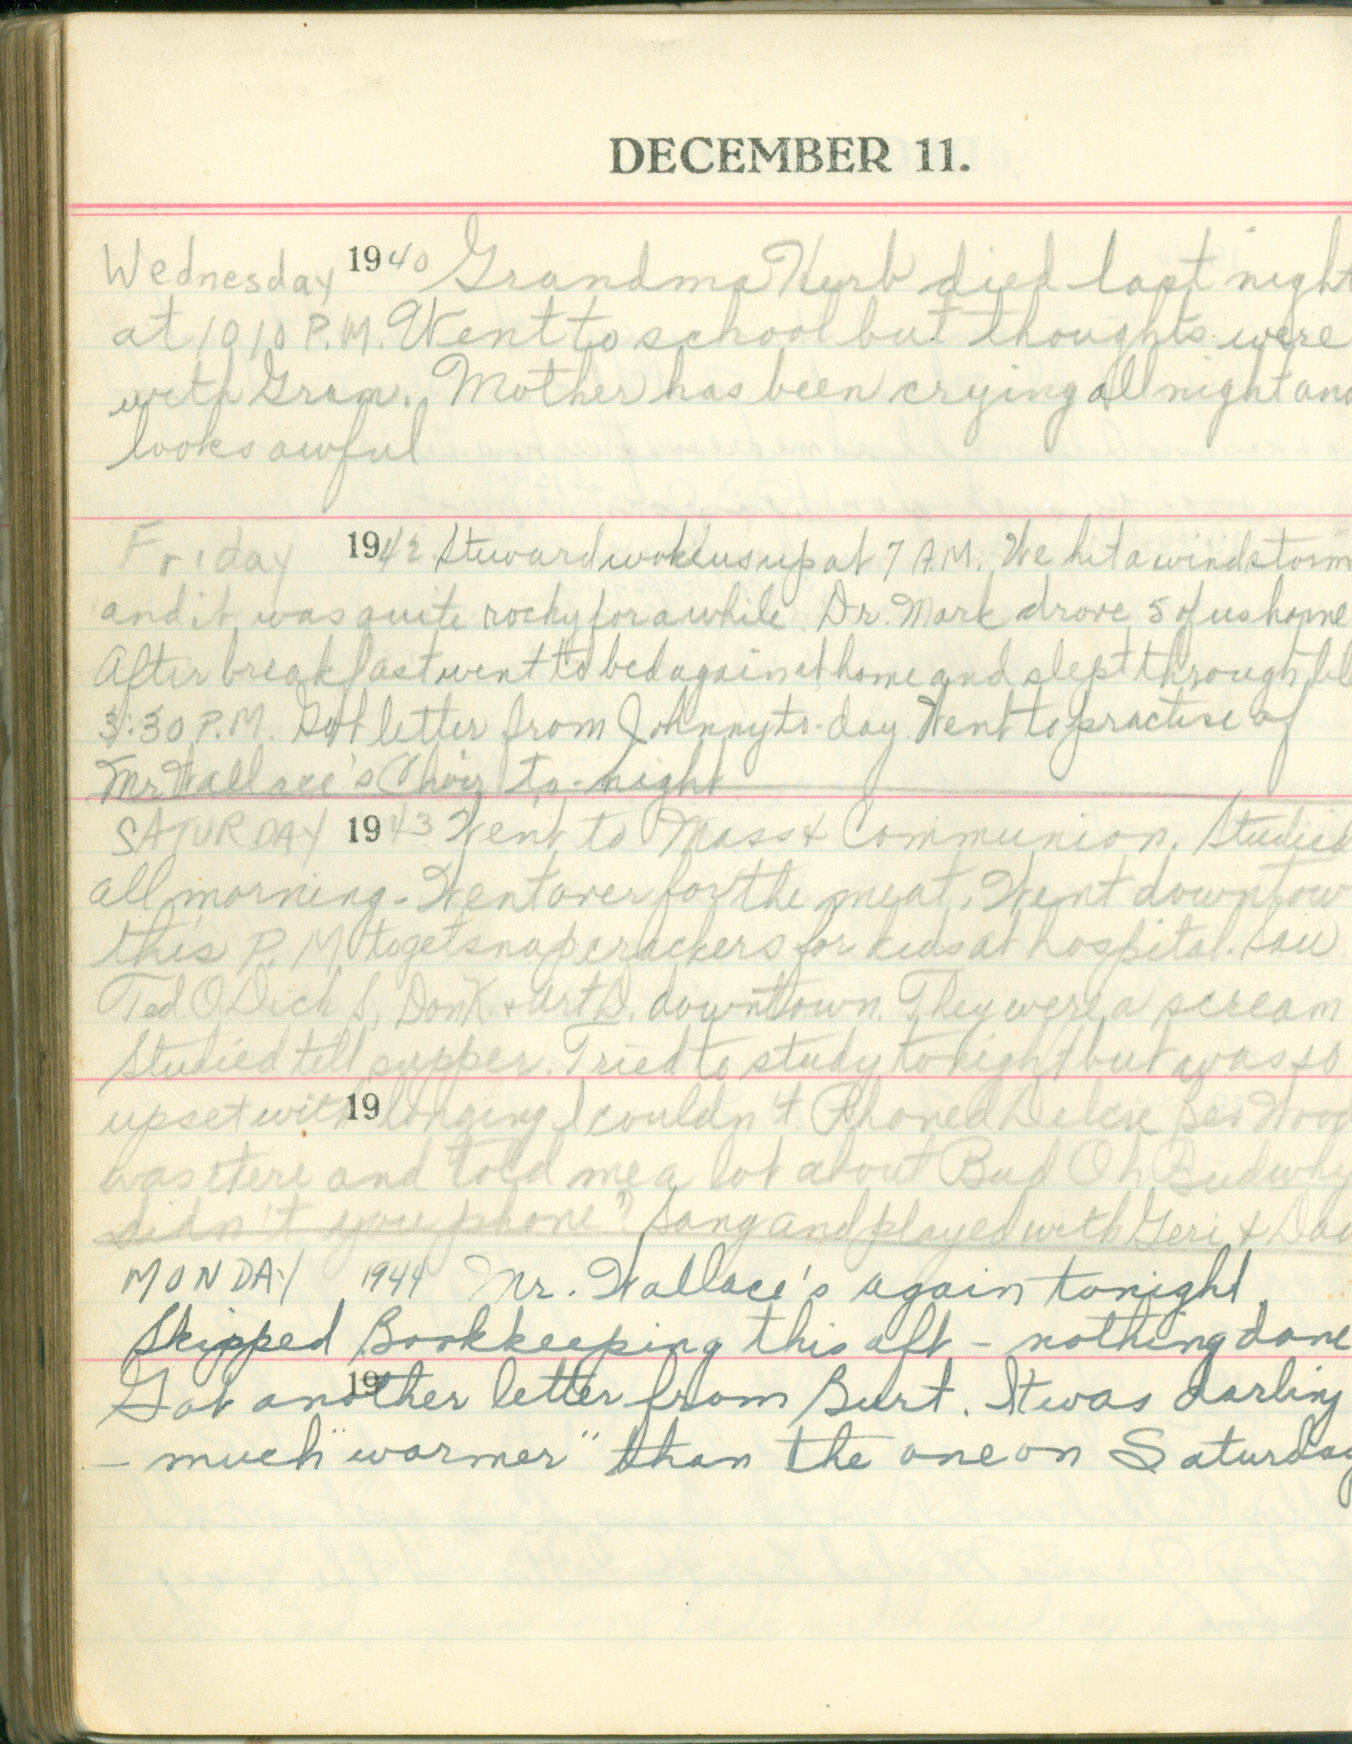 DECEMBER 11.
Wednesday 1940 Grandma Kerb died last night
at 10 10 P.M. Went to school but thoughts were
with Gram. Mother has been crying all night and
looks awful
Friday 1942 Steward woke us up at 7 A.M. We hit a windstorm
and it was quite rocky for a while. Dr. Mark drove 5 of us home
After breakfast went to bed again at home and slept through till
3:30 P.M. Got letter from Johnny to-day. Went to practise of
Mr Wallace's Choir to-night
SATURDAY 1943 Went to Mass & Communion. Studied
all morning - Went over for the meat. Went downtow
this P.M to get snapcrackers for kids at hospital. Saw
Ted O. Dick S, Don K. & Art D. downtown. They were a scream
Studied till supper. Tried to study tonight but was so
19
upset with longing I couldn't. Phoned Bev Wood
was there and told me a lot about Bud. Oh Bud why
didn't you phone? Sang and played with Geri &
MONDAY 1944 Mr. Wallace's again tonight.
Skipped Bookkeeping this aft - nothing done
19
Got another letter from Burt. It was darling
- much "warmer" than the one on Saturday